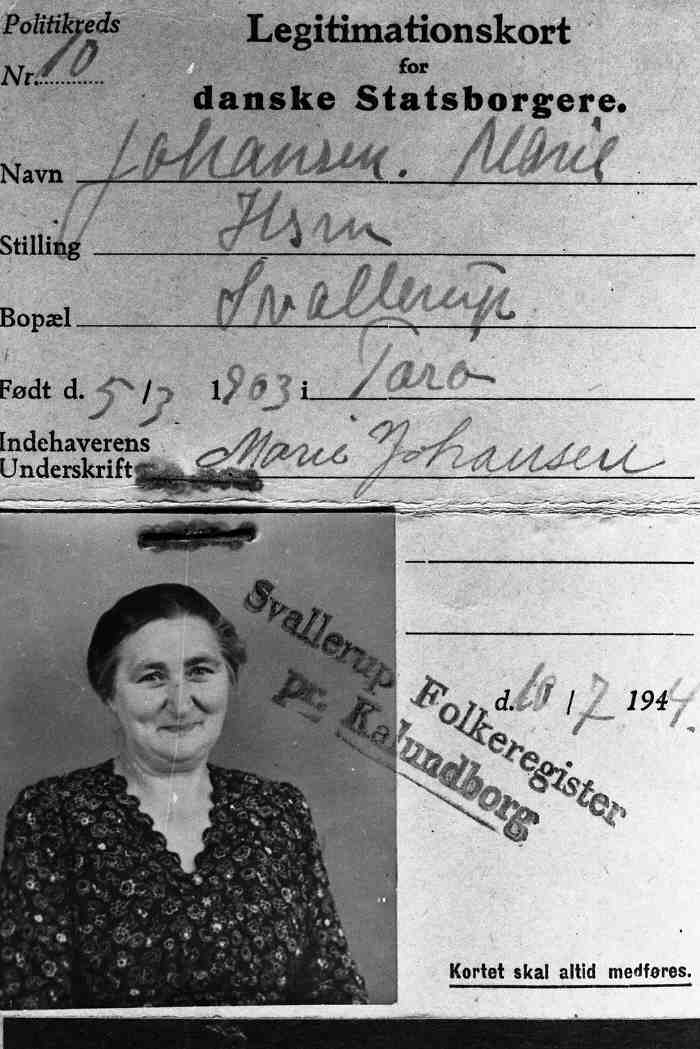 Politikreds
Nr. 10
Legitimationskort
for
danske Statsborgere.
Navn Johansen. Marie
Stilling Hsm
Bopæl Svallerup
Født d. 5/3 1903 i Tarø
Indehaverens
Underskrift Marie Johansen
d. 10/7 1944.
Svallerup Folkeregister
pr. Kalundborg
Kortet skal altid medføres.